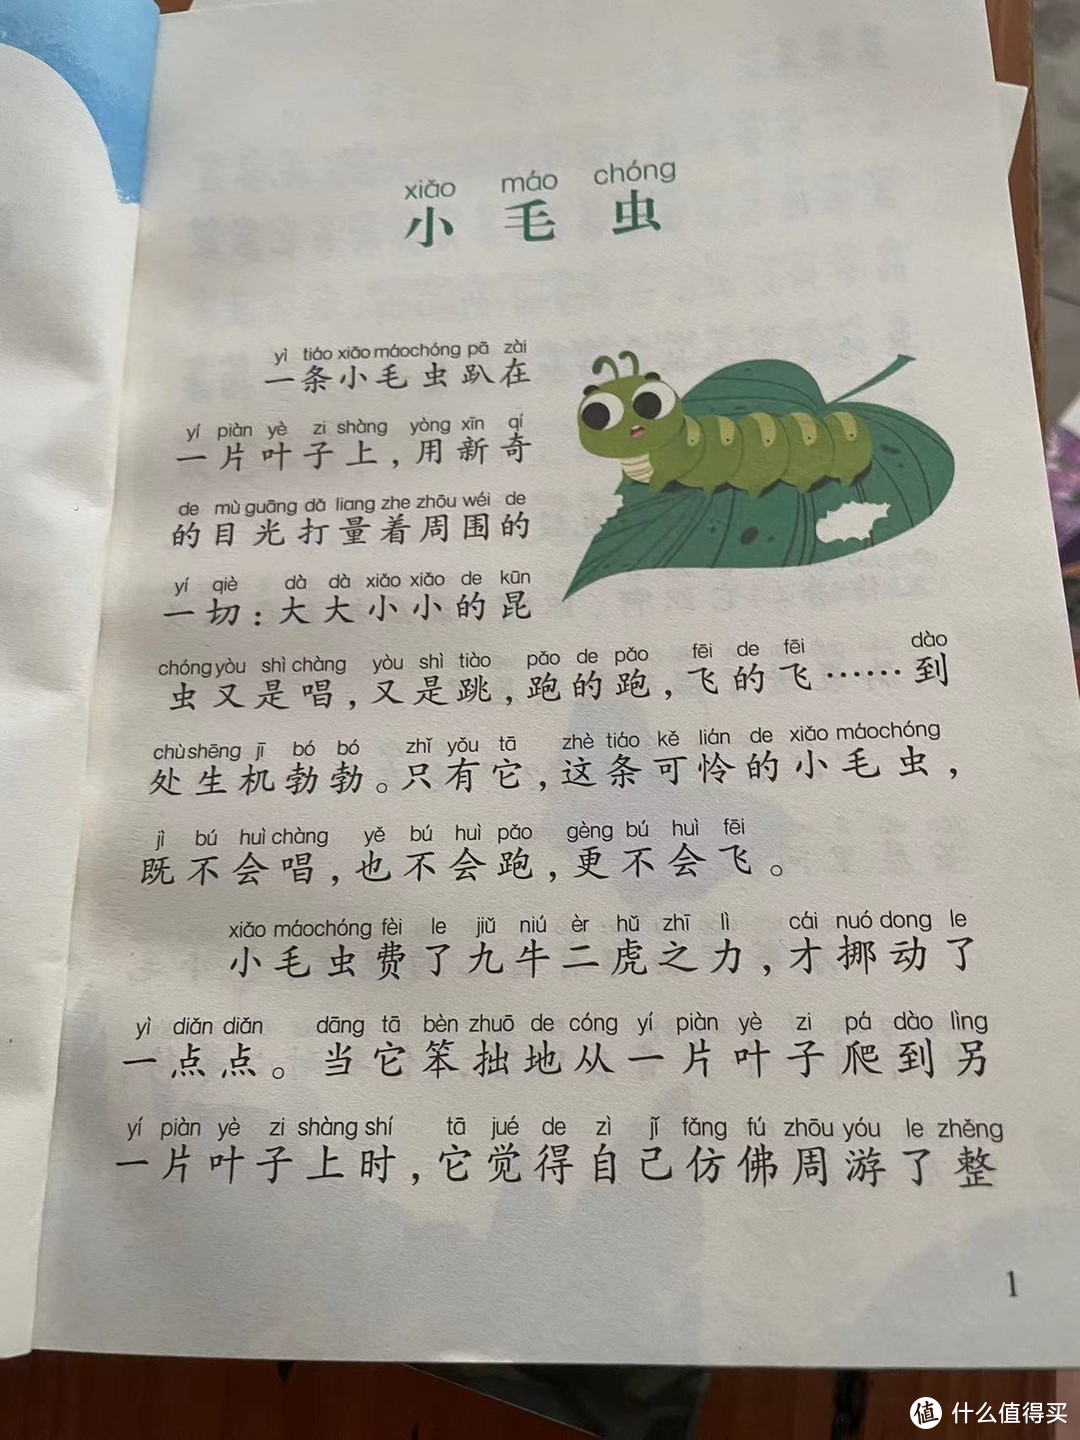 xiǎo máo chóng
小毛虫
yì tiáo xiǎo máochóng pā zài
一条小毛虫趴在
yí piàn yè zi shàng yòng xīn qí
一片叶子上，用新奇
de mù guāng dǎ liang zhe zhōu wéi de
的目光打量着周围的
yí qiè dà dà xiǎo xiǎo de kūn
一切：大大小小的昆
chóng yòu shì chàng yòu shì tiào pǎo de pǎo fēi de fēi dào
虫又是唱，又是跳，跑的跑，飞的飞……到
chù shēng jī bó bó zhǐ yǒu tā zhè tiáo kě lián de xiǎo máochóng
处生机勃勃。只有它，这条可怜的小毛虫，
jì bú huì chàng yě bú huì pǎo gèng bú huì fēi
既不会唱，也不会跑，更不会飞。
xiǎo máochóng fèi le jiǔ niú èr hǔ zhī lì cái nuó dong le
小毛虫费了九牛二虎之力，才挪动了
yì diǎn diǎn dāng tā bèn zhuō de cóng yí piàn yè zi pá dào lìng
一点点。当它笨拙地从一片叶子爬到另
yí piàn yè zi shàng shí tā jué de zì jǐ fǎng fú zhōu yóu le zhěng
一片叶子上时，它觉得自己仿佛周游了整
1
值 什么值得买